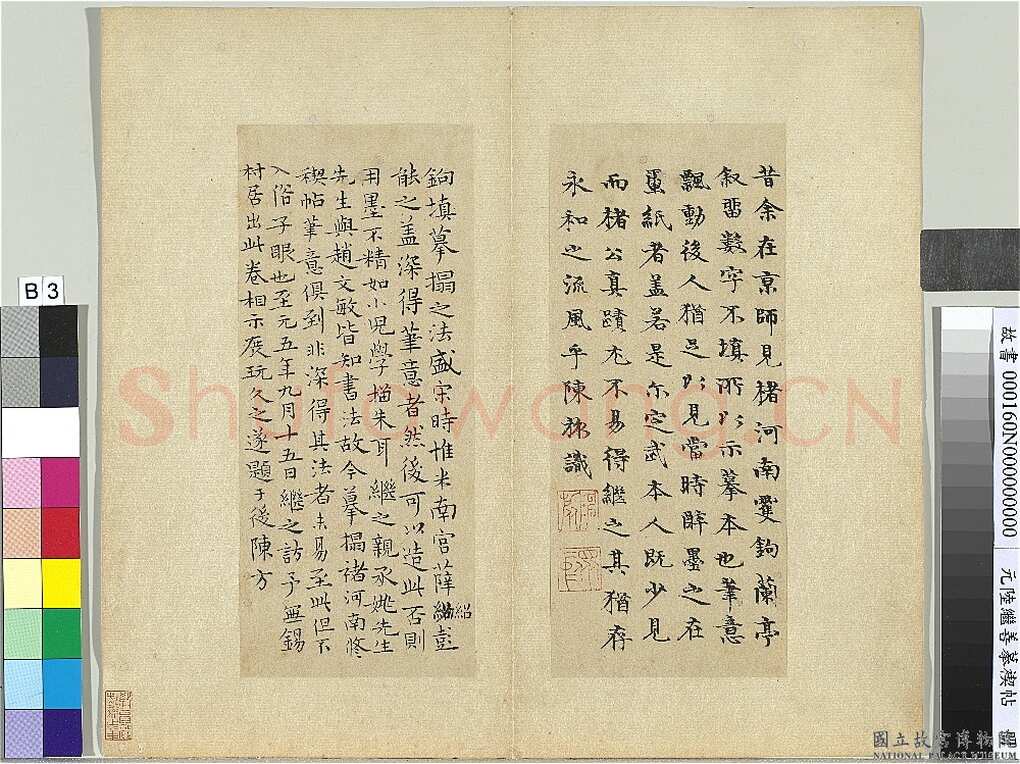 昔余在京師見褚河南雙鉤蘭亭
叙留數字不填所以示摹本也筆意
飄動後人猶足以見當時醉墨之在
蠒紙者蓋若是尔定武本人既少見
而褚公真蹟尤不易得繼之其猶存
永和之流風乎陳旅識
鉤填摹搨之法盛宋時惟米南宮薛紹彭
能之蓋深得筆意者然後可以造此否則
用墨不精如小兒學描朱耳繼之親承姚先生
先生與趙文敏皆知書法故今摹搨褚河南修
稧帖筆意俱到非深得其法者未易至此但不
入俗子眼也至元五年九月十五日繼之訪予無錫
村居出此卷相示展玩久之遂題于後陳方
B 3
故書 000160N000000000
元陸繼善摹禊帖
Shufawang.CN
國立故宮博物院
NATIONAL PALACE MUSEUM